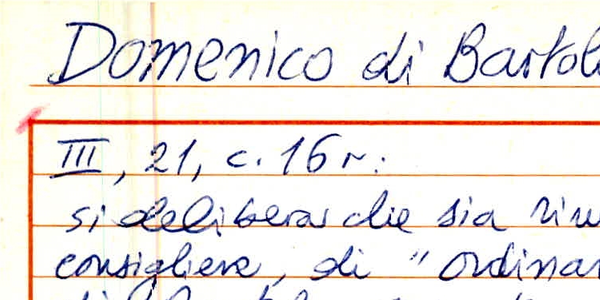 Domenico di Bartol
III, 21, c. 16 r.:
si delibera che sia rin
consigliere, di "ordinar